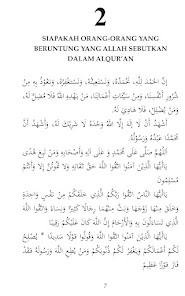 2
SIAPAKAH ORANG-ORANG YANG
BERUNTUNG YANG ALLAH SEBUTKAN
DALAM ALQUR'AN
إِنَّ الْحَمْدَ لِلَّهِ، نَحْمَدُهُ، وَنَسْتَعِيْنُهُ، وَنَسْتَغْفِرُهُ، وَنَعُوْذُ بِهِ مِنْ
شُرُوْرِ أَنْفُسِنَا، وَمِنْ سَيِّئَاتِ أَعْمَالِنَا، مَنْ يَهْدِهِ اللَّهُ فَلاَ مُضِلَّ لَهُ،
وَمَنْ يُضْلِلْ، فَلاَ هَادِيَ لَهُ.
وَأَشْهَدُ أَنْ لاَ إِلَهَ إِلاَّ اللَّهُ وَحْدَهُ لاَ شَرِيْكَ لَهُ، وَأَشْهَدُ أَنَّ
مُحَمَّدًا عَبْدُهُ وَرَسُوْلُهُ.
اللَّهُمَّ صَلِّى عَلَى مُحَمَّدٍ وَ عَلَى آلِهِ وَأَصْحَابِهِ
يَاأَيُّهَا الَّذِيْنَ آمَنُوا اتَّقُوا اللَّهَ حَقَّ تُقَاتِهِ وَلاَ تَمُوْتُنَّ إِلاَّ وَأَنْتُمْ
مُسْلِمُوْنَ
يَاأَيُّهَا النَّاسُ اتَّقُوا رَبَّكُمُ الَّذِي خَلَقَكُمْ مِنْ نَفْسٍ وَاحِدَةٍ
وَخَلَقَ مِنْهَا زَوْجَهَا وَبَثَّ مِنْهُمَا رِجَالاً كَثِيْرًا وَنِسَاءً وَاتَّقُوا اللَّهَ
الَّذِي تَسَاءَلُوْنَ بِهِ وَالأَرْحَامَ إِنَّ اللَّهَ كَانَ عَلَيْكُمْ رَقِيْبًا
يَاأَيُّهَا الَّذِيْنَ آمَنُوا اتَّقُوا اللَّهَ وَقُوْلُوا قَوْلاً سَدِيْدًا * يُصْلِحْ
لَكُمْ أَعْمَالَكُمْ وَيَغْفِرْ لَكُمْ ذُنُوْبَكُمْ وَمَنْ يُطِعِ اللَّهَ وَرَسُوْلَهُ فَقَدْ
فَازَ فَوْزًا عَظِيْمًا
7